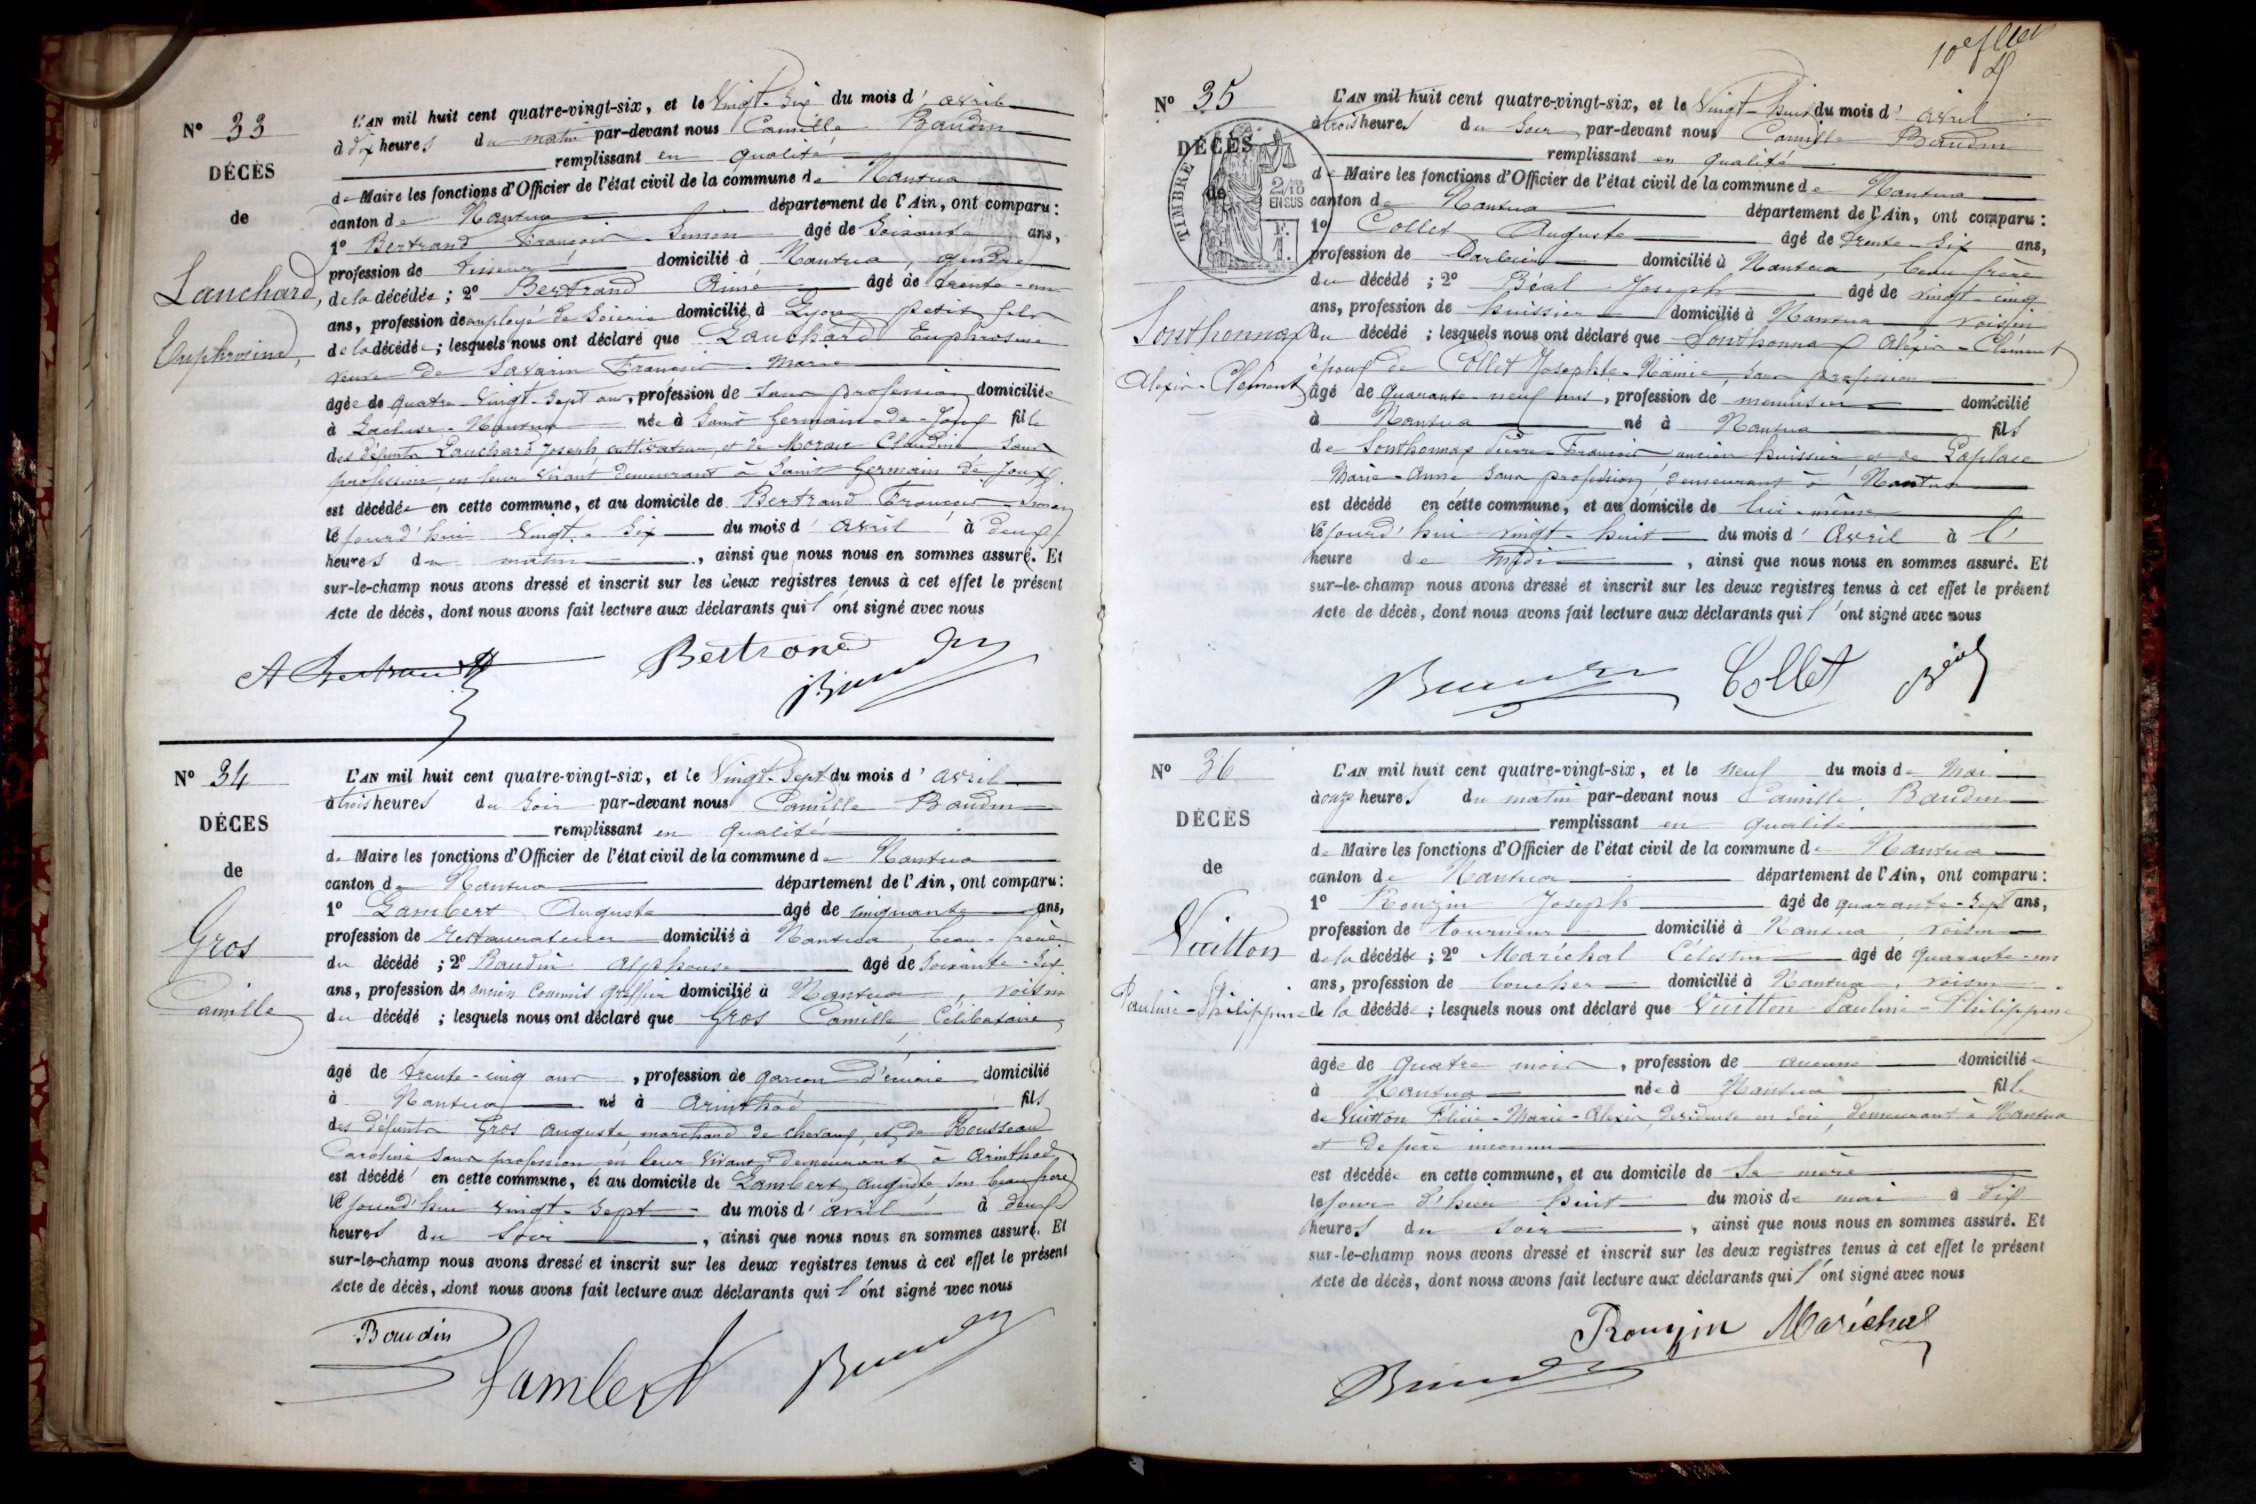 N° 33
DÉCÈS
de
Lanchard,
Euphrosine,
L'AN mil huit cent quatre-vingt-six, et le Vingt-Six du mois d' avril
à dix heures du matin par-devant nous Camille Baudin
remplissant en qualité
de Maire les fonctions d'Officier de l'état civil de la commune de Nantua
canton de Nantua département de l'Ain, ont comparu:
1° Bertrand François Simon âgé de Soixante ans,
profession de tisseur domicilié à Nantua, gendre
de la décédée; 2° Bertrand Aimé âgé de trente-un
ans, profession de employé de Soierie domicilié à Lyon petit fils
de la décédée; lesquels nous ont déclaré que Lanchard Euphrosine
veuve de Savarin François-Marie
âgée de quatre Vingt-Sept ans, profession de Sans profession domiciliée
à Lacluse-Nantua née à Saint Germain-de-Joux fille
des défunts Lanchard Joseph cultivateur et de Moraux Claudine sans
profession en leur vivant demeurant à Saint Germain de Joux,
est décédée en cette commune, et au domicile de Bertrand François-Simon
le jourd'hui Vingt-Six du mois d' avril à deux
heures du matin, ainsi que nous nous en sommes assuré. Et
sur-le-champ nous avons dressé et inscrit sur les deux registres tenus à cet effet le présent
Acte de décès, dont nous avons fait lecture aux déclarants qui l'ont signé avec nous
A Bertrand Bertrand
Baudin
N° 34
DÉCES
de
Gros
Camille
L'AN mil huit cent quatre-vingt-six, et le Vingt-Sept du mois d' avril
à trois heures du Soir par-devant nous Camille Baudin
remplissant en qualité
de Maire les fonctions d'Officier de l'état civil de la commune de Nantua
canton de Nantua département de l'Ain, ont comparu:
1° Lambert Auguste âgé de cinquante ans,
profession de restaurateur domicilié à Nantua, beau-frère
du décédé; 2° Baudin Alphonse âgé de Soixante-Six
ans, profession de ancien Commis Greffier domicilié à Nantua, voisin
du décédé; lesquels nous ont déclaré que Gros Camille, Célibataire,
âgé de trente-cinq ans, profession de garçon d'écurie domicilié
à Nantua né à Arinthod fils
des défunts Gros Auguste, marchand de chevaux, et de Rousseau
Caroline sans profession en leur vivant demeurant à Arinthod
est décédé en cette commune, et au domicile de Lambert Auguste son beau frère
le jourd'hui vingt-sept du mois d' avril à deux
heures du Soir, ainsi que nous nous en sommes assuré. Et
sur-le-champ nous avons dressé et inscrit sur les deux registres tenus à cet effet le présent
Acte de décès, dont nous avons fait lecture aux déclarants qui l'ont signé avec nous
Baudin
Lambert Baudin
10e fllet
N° 35
DÉCÈS
de
TIMBRE
2/10 EN SUS
Sonthonnax
Alexis-Clément
L'AN mil huit cent quatre-vingt-six, et le Vingt-huit du mois d' avril
à trois heures du Soir par-devant nous Camille Baudin
remplissant en qualité
de Maire les fonctions d'Officier de l'état civil de la commune de Nantua
canton de Nantua département de l'Ain, ont comparu:
1° Collet Auguste âgé de trente-Six ans,
profession de domicilié à Nantua, beau frère
du décédé; 2° Béal Joseph âgé de vingt-cinq
ans, profession de huissier domicilié à Nantua voisin
du décédé; lesquels nous ont déclaré que Sonthonnax Alexis-Clément
époux de Collet Josephte, sans profession
âgé de Quarante neuf ans, profession de menuisier domicilié
à Nantua né à Nantua fils
de Sonthonnax Pierre-François ancien huissier et de Laplace
Marie-Anne sans profession demeurant à Nantua
est décédé en cette commune, et au domicile de lui-même
le jourd'hui vingt-huit du mois d' Avril à l'
heure de midi, ainsi que nous nous en sommes assuré. Et
sur-le-champ nous avons dressé et inscrit sur les deux registres tenus à cet effet le présent
Acte de décès, dont nous avons fait lecture aux déclarants qui l'ont signé avec nous
Baudin Collet Béal
N° 36
DÉCÈS
de
Vuitton
Pauline-Philippine
L'AN mil huit cent quatre-vingt-six, et le neuf du mois de Mai
à onze heures du matin par-devant nous Camille Baudin
remplissant en qualité
de Maire les fonctions d'Officier de l'état civil de la commune de Nantua
canton de Nantua département de l'Ain, ont comparu:
1° Rougin Joseph âgé de quarante-Sept ans,
profession de tourneur domicilié à Nantua, voisin
de la décédée; 2° Maréchal Célestin âgé de quarante-un
ans, profession de boucher domicilié à Nantua, voisin
de la décédée; lesquels nous ont déclaré que Vuitton Pauline-Philippine
âgée de quatre mois, profession de aucune domiciliée
à Nantua née à Nantua fille
de Vuitton Félicie-Marie-Alexis, dévideuse en soie, demeurant à Nantua
et de père inconnu
est décédée en cette commune, et au domicile de Sa mère
le jour d'hier huit du mois de mai à dix
heures du Soir, ainsi que nous nous en sommes assuré. Et
sur-le-champ nous avons dressé et inscrit sur les deux registres tenus à cet effet le présent
Acte de décès, dont nous avons fait lecture aux déclarants qui l'ont signé avec nous
Rougin Maréchal
Baudin